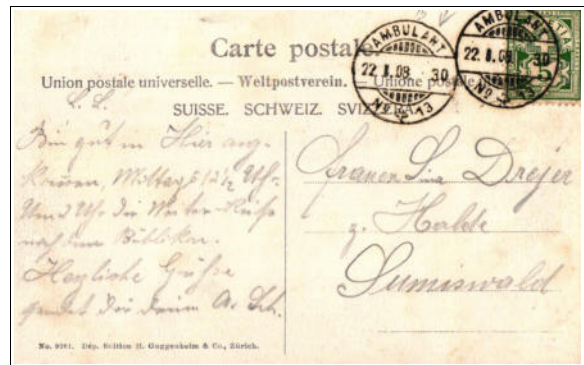 Carte postale.
Union postale universelle. — Weltpostverein. — Unione postale
SUISSE. SCHWEIZ. SVIZZERA.
AMBULANT
22.I.08 30
No 13
AMBULANT
22.I.08 30
No 13
L. L.
Bin gut in Hier ange-
kommen, Mittag 12½ Uhr.
Um 2 Uhr die Weiter Reise
nach
Herzliche Grüsse
sendet dir deine
Frauen Lina Dreyer
z. Halde
Sumiswald
No. 9261. Dép. Edition H. Guggenheim & Co., Zürich.